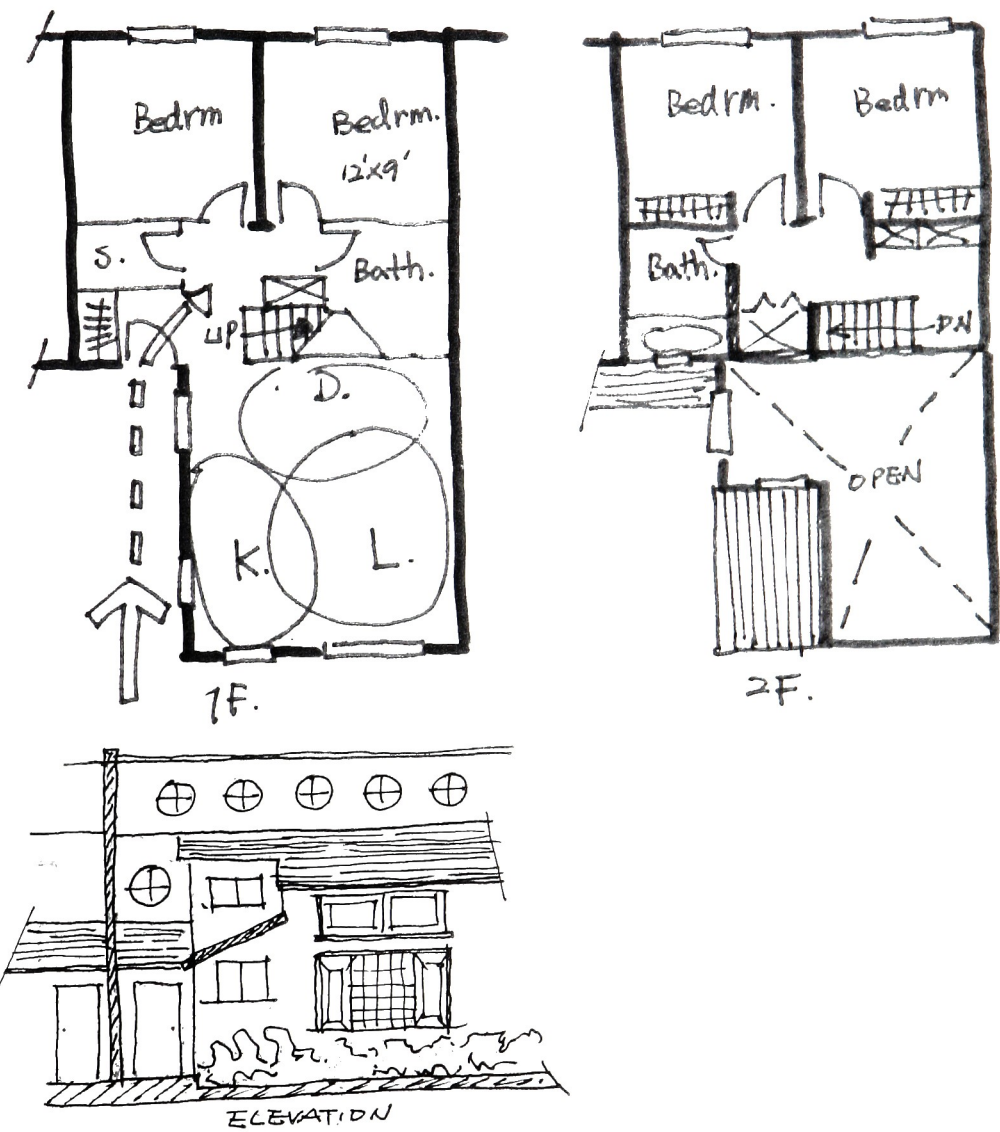 Bedrm
Bedrm.
12'x9'
S.
Bath.
UP
D.
K.
L.
1F.
Bedrm.
Bedrm
Bath.
DN
OPEN
2F.
ELEVATION